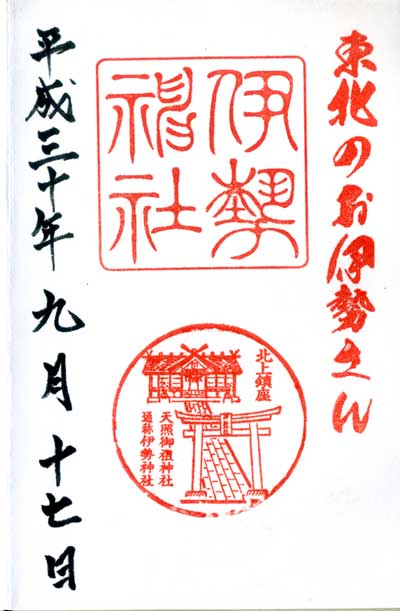 東北のお伊勢さん
伊勢
神社
北上鎮座
天照御祖神社
通称伊勢神社
平成三十年九月十七日